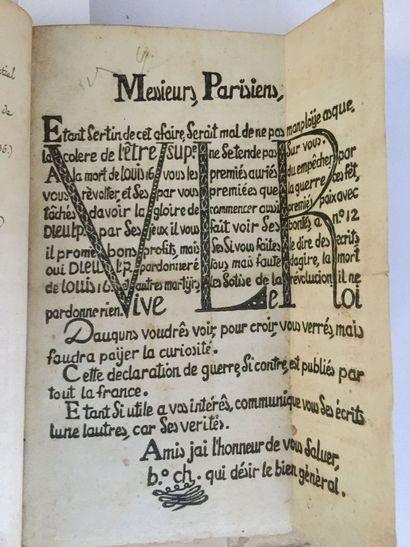 Messieurs, Parisiens,
Etant Sertin de cet afaire, Serait mal de ne pas manployé asque,
la colere de l'être supe. Ne Setende pas Sur vous.
A la mort de Louis 16 vous les premiés auriés du empécher par
vous révolter, et Ses par vous premiées que la guerre, ces fét,
tâchés davoir la gloire de commencer aussi premiés paix avec
Dieu par Ses jeux il vous fait voir Ses bontés a n° 12
il promet bons profits, mais Ses Si vous faites le dire des écrits
oui Dieu pardonneré tous mais faute dagire, la mort
de Louis 16 dautres martyrs les Sotise de la révolucion il ne
pardonne rien. Vive Le Roi
VLR
Dauquns voudrês voir, pour croir, vous verrés, mais
faudra païjer la curiosité.
Cette declaration de guerre, Si contre, est publiés par
tout la france.
Etant Si utile a vos interês, communique vous Ses écrits
lune lautres, car Ses verités.
Amis jai l'honneur de vous Saluer,
b.° ch. qui désir le bien gènèral.